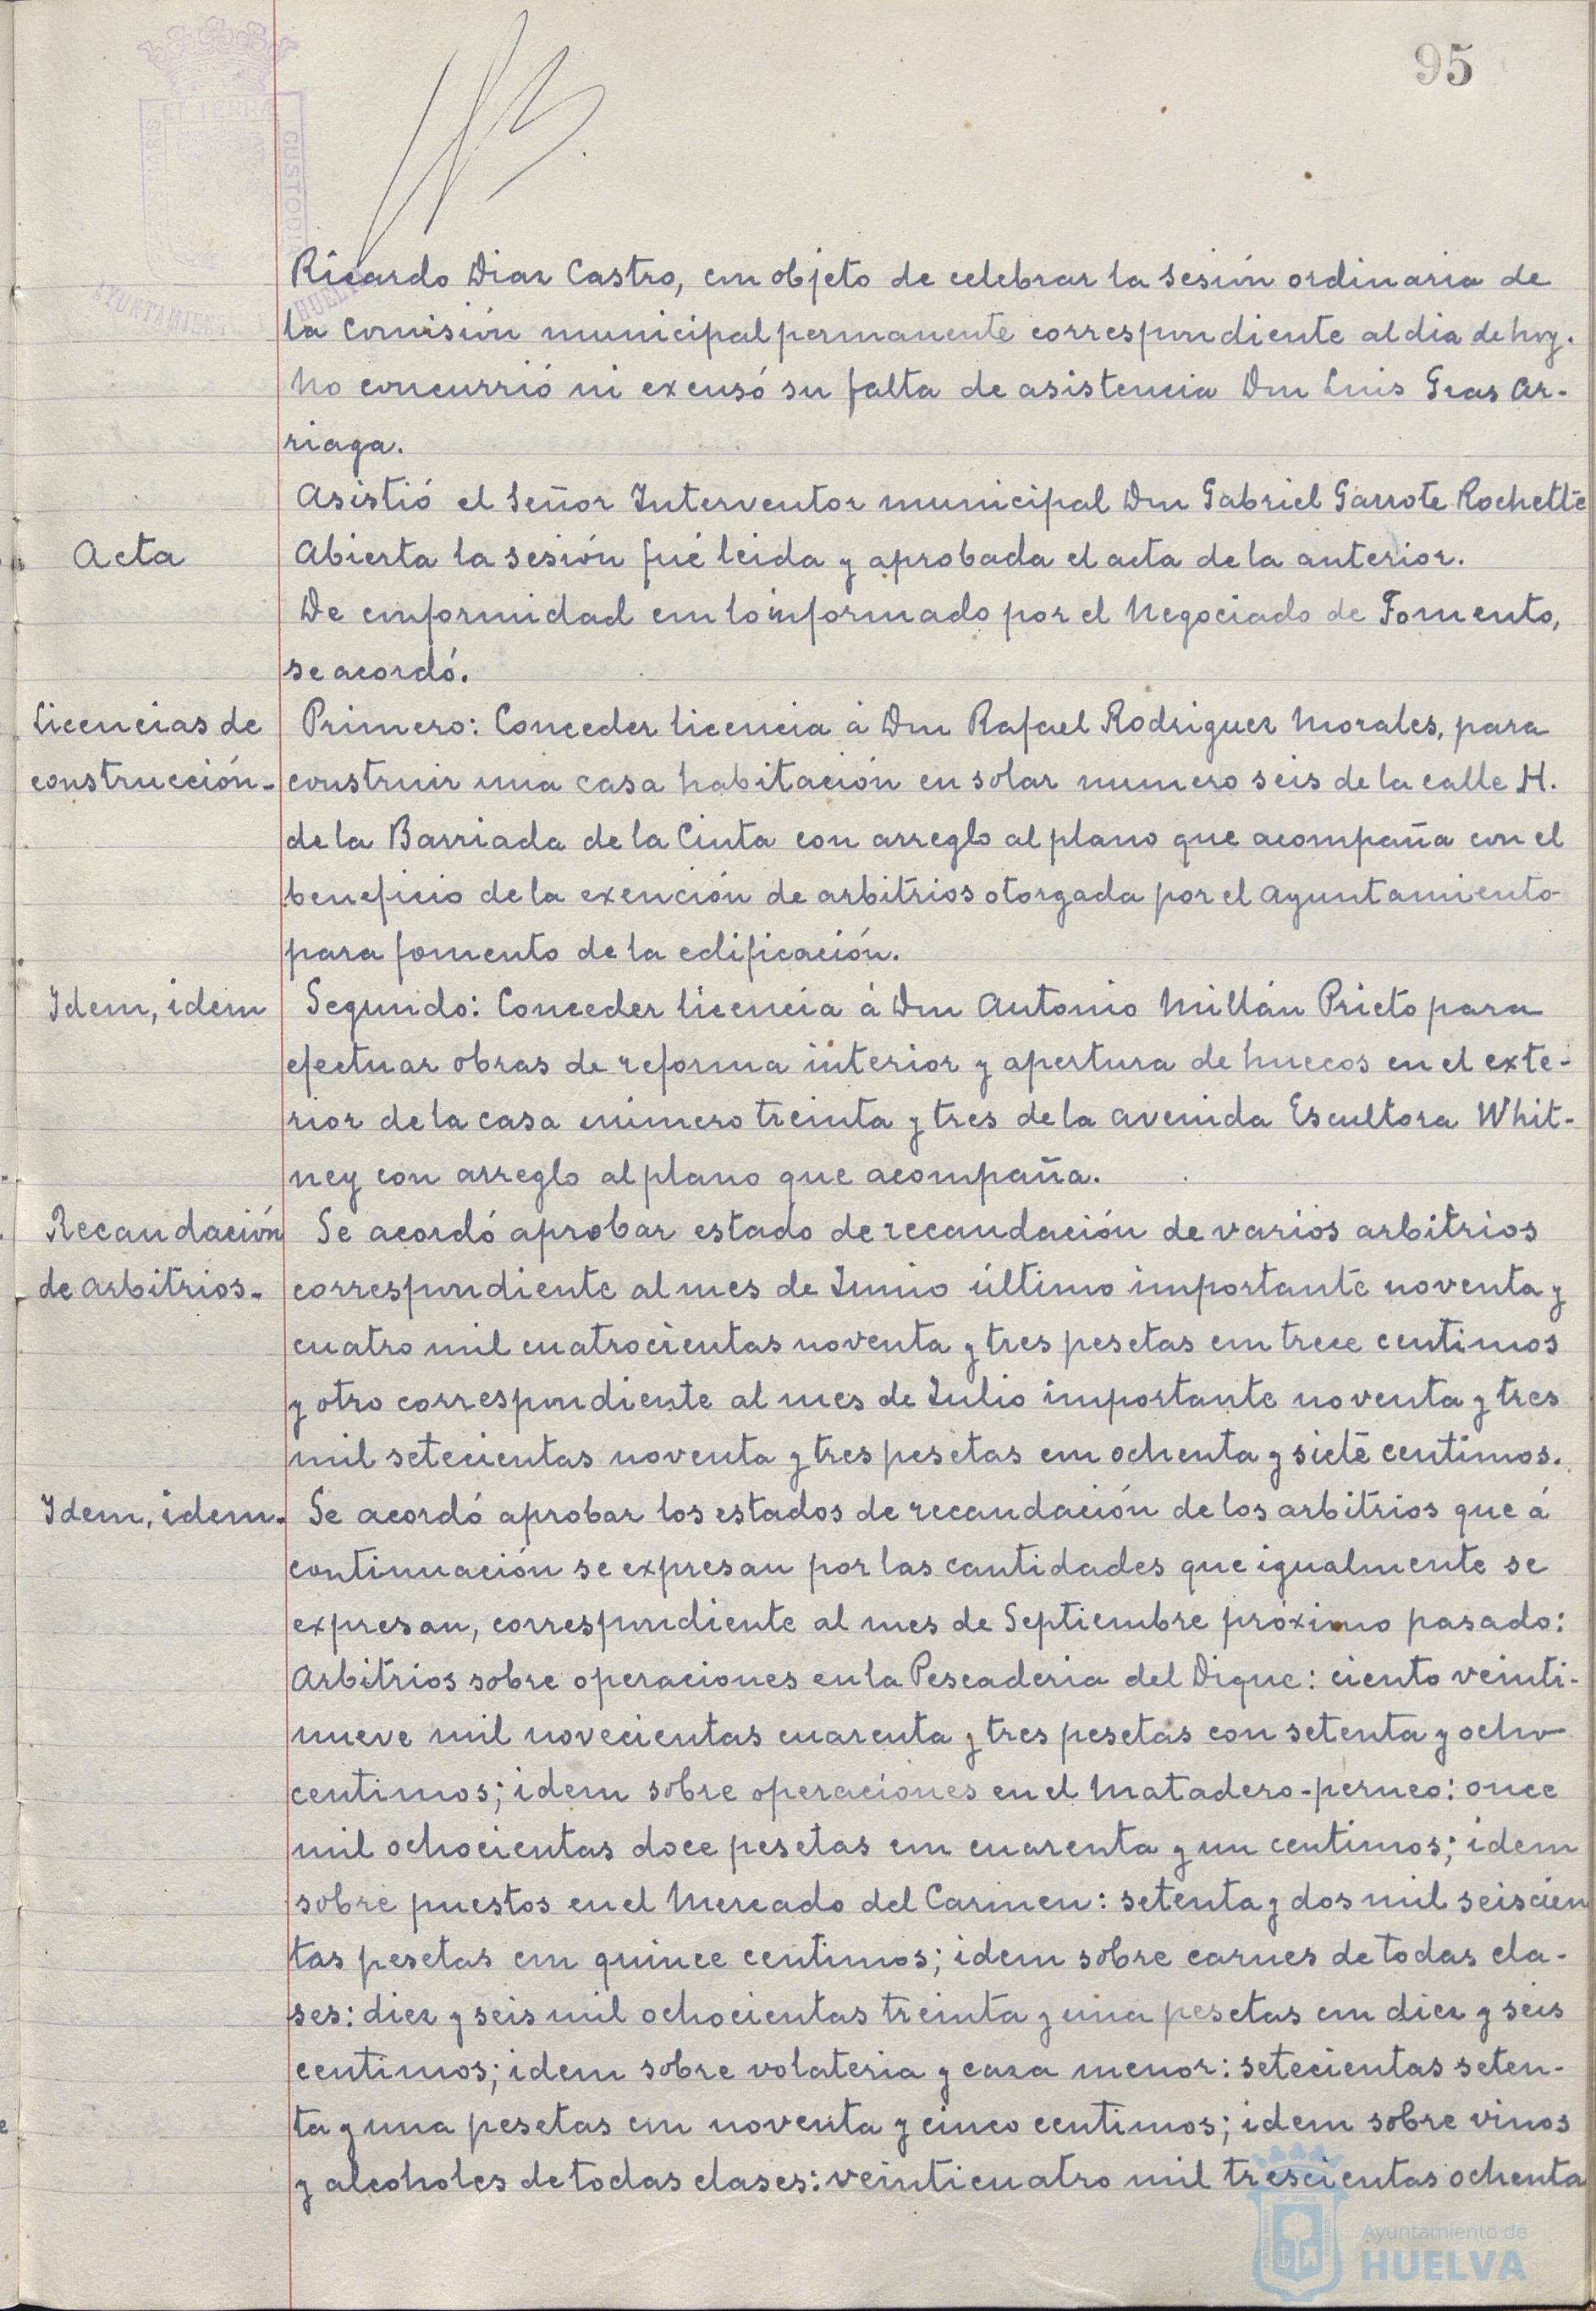 95
PORTUS MARIS ET TERRAE CUSTODIA
AYUNTAMIENTO HUELVA
Ricardo Diaz Castro, con objeto de celebrar la sesión ordinaria de
la Comisión municipal permanente correspondiente al dia de hoy.
No concurrió ni excusó su falta de asistencia Don Luis Gras Ar-
riaga.
Asistió el Señor Interventor municipal Don Gabriel Garrote Rochette
Acta
Abierta la sesión fué leida y aprobada el acta de la anterior.
De conformidad con lo informado por el Negociado de Fomento,
se acordó.
Licencias de
construcción-
Primero: Conceder licencia á Don Rafael Rodriguez Morales, para
construir una casa habitación en solar numero seis de la calle H.
de la Barriada de la Cinta con arreglo al plano que acompaña con el
beneficio de la exención de arbitrios otorgada por el Ayuntamiento
para fomento de la edificación.
Idem, idem
Segundo: Conceder licencia á Don Antonio Millán Prieto para
efectuar obras de reforma interior y apertura de huecos en el exte-
rior de la casa número treinta y tres de la avenida Escultora Whit-
ney con arreglo al plano que acompaña.
Recaudación
de arbitrios-
Se acordó aprobar estado de recaudación de varios arbitrios
correspondiente al mes de Junio último importante noventa y
cuatro mil cuatrocientas noventa y tres pesetas con trece centimos
y otro correspondiente al mes de Julio importante noventa y tres
mil setecientas noventa y tres pesetas con ochenta y siete centimos.
Idem, idem-
Se acordó aprobar los estados de recaudación de los arbitrios que á
continuación se expresan por las cantidades que igualmente se
expresan, correspondiente al mes de Septiembre próximo pasado:
Arbitrios sobre operaciones en la Pescaderia del Dique: ciento veinti-
nueve mil novecientas cuarenta y tres pesetas con setenta y ocho
centimos; idem sobre operaciones en el Matadero-perneo: once
mil ochocientas doce pesetas con cuarenta y un centimos; idem
sobre puestos en el Mercado del Carmen: setenta y dos mil seiscien
tas pesetas con quince centimos; idem sobre carnes de todas cla-
ses: diez y seis mil ochocientas treinta y una pesetas con diez y seis
centimos; idem sobre volateria y caza menor: setecientas seten-
ta y una pesetas con noventa y cinco centimos; idem sobre vinos
y alcoholes de todas clases: veinticuatro mil trescientas ochenta
Ayuntamiento de
HUELVA